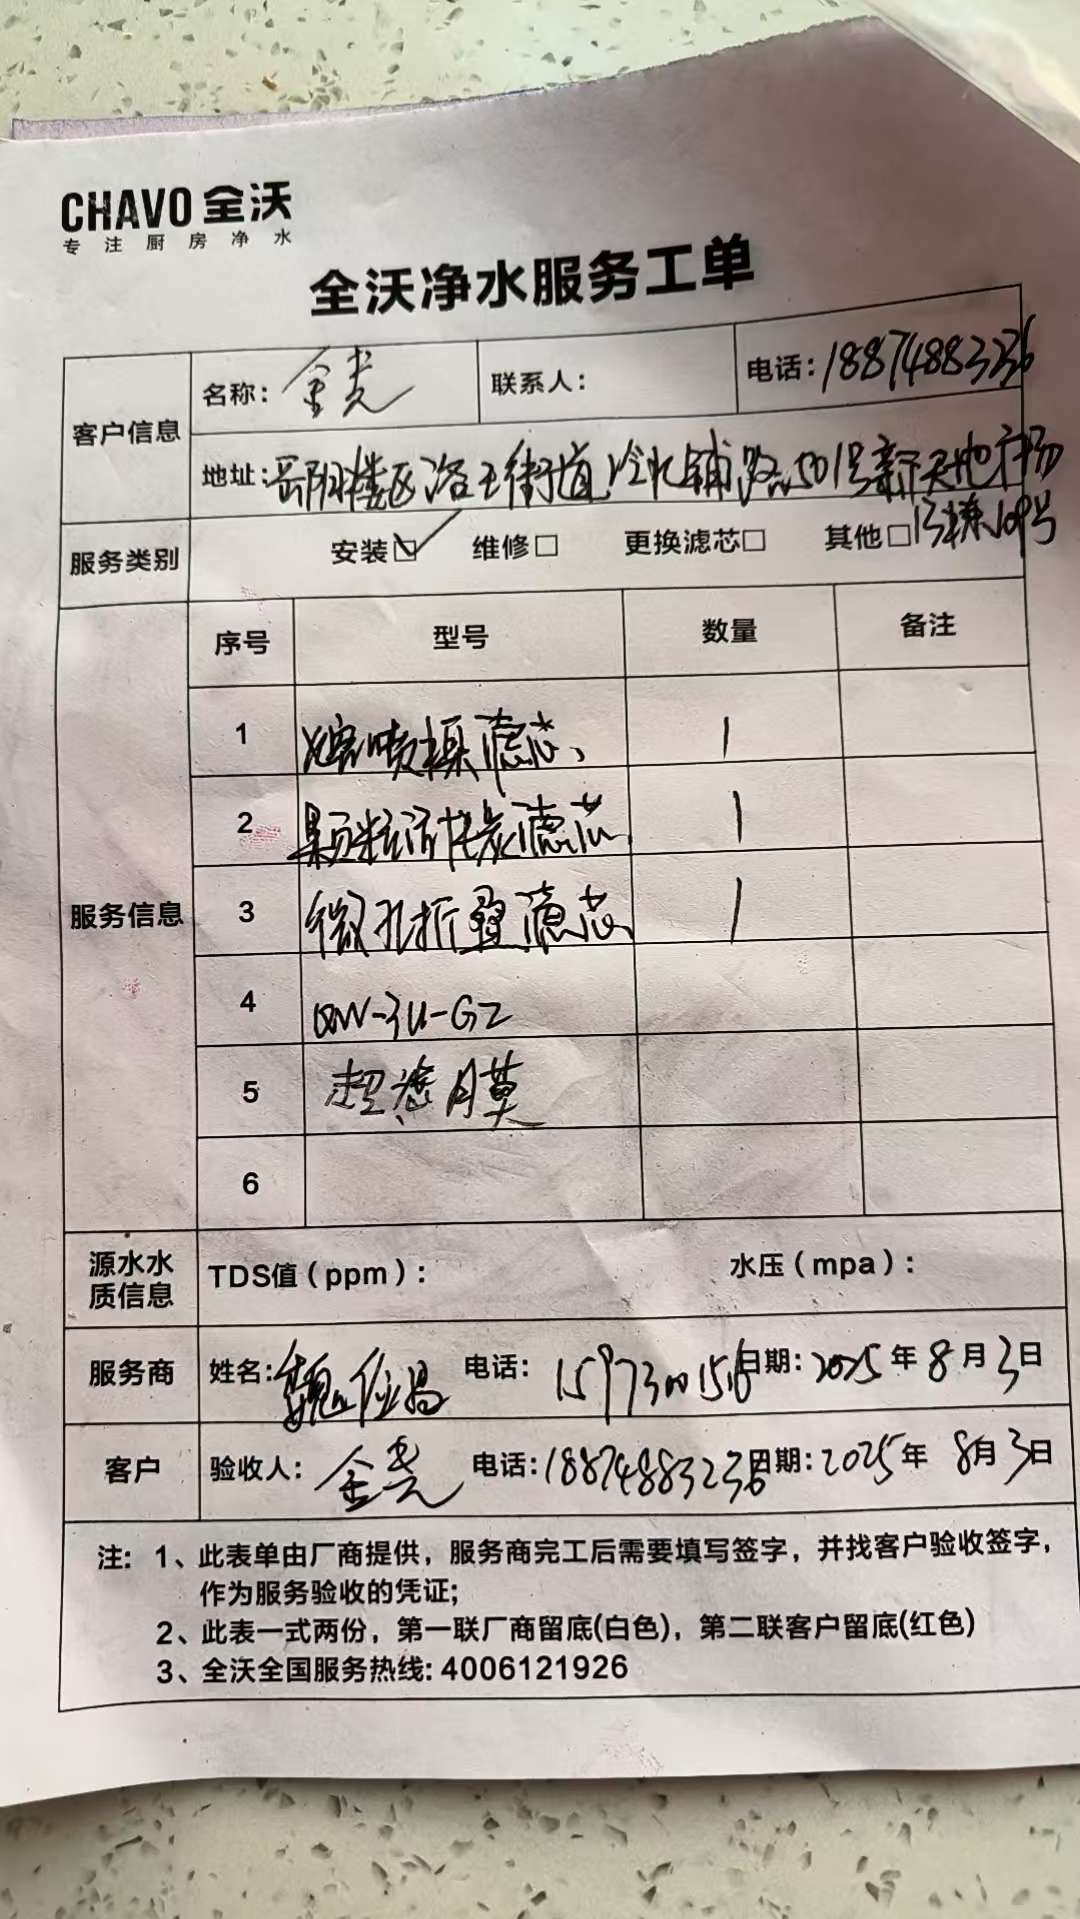 CHAVO 全沃
专注厨房净水
全沃净水服务工单
客户信息 名称: 金尧 联系人: 电话: 18874883236
地址: 岳阳楼区洛王街道冷水铺路501号新天地市场
13栋109号
服务类别 安装☑ 维修□ 更换滤芯□ 其他□
服务信息 序号 型号 数量 备注
1 熔喷 滤芯、 1
2 颗粒活性炭滤芯 1
3 微孔折叠滤芯 1
4 QW-3U-G2
5 超滤膜
6
源水水质信息 TDS值(ppm): 水压(mpa):
服务商 姓名: 魏 电话: 日期: 2025年8月3日
客户 验收人: 金尧 电话: 18874883236 日期: 2025年8月3日
注: 1、此表单由厂商提供，服务商完工后需要填写签字，并找客户验收签字，
作为服务验收的凭证;
2、此表一式两份，第一联厂商留底(白色)，第二联客户留底(红色)
3、全沃全国服务热线: 4006121926